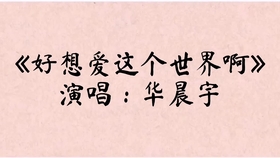 《好想爱这个世界啊》
演唱：华晨宇